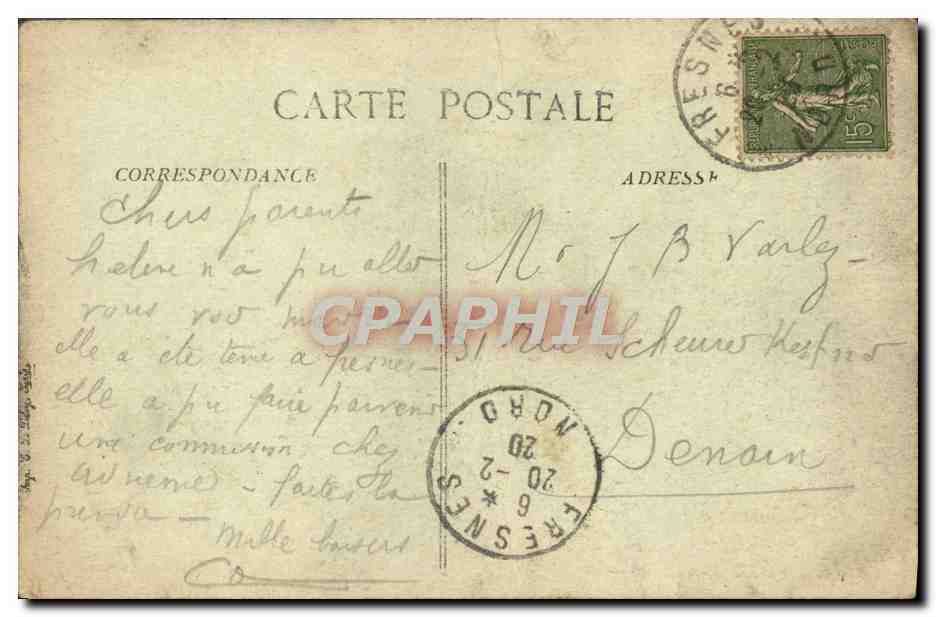 CARTE POSTALE
CORRESPONDANCE
chers parents
helene n'a pu aller
vous voir
elle a été tenue a fresnes
elle a pu faire parvenir
une commission chez
faites la
prendre
Mille baisers
ADRESSE
Mr J B Varlez
31 Rue Scheurer Kestner
Denain
FRESNES
6
15c
FRESNES NORD
6 *
20 -2
20
CPAPHIL